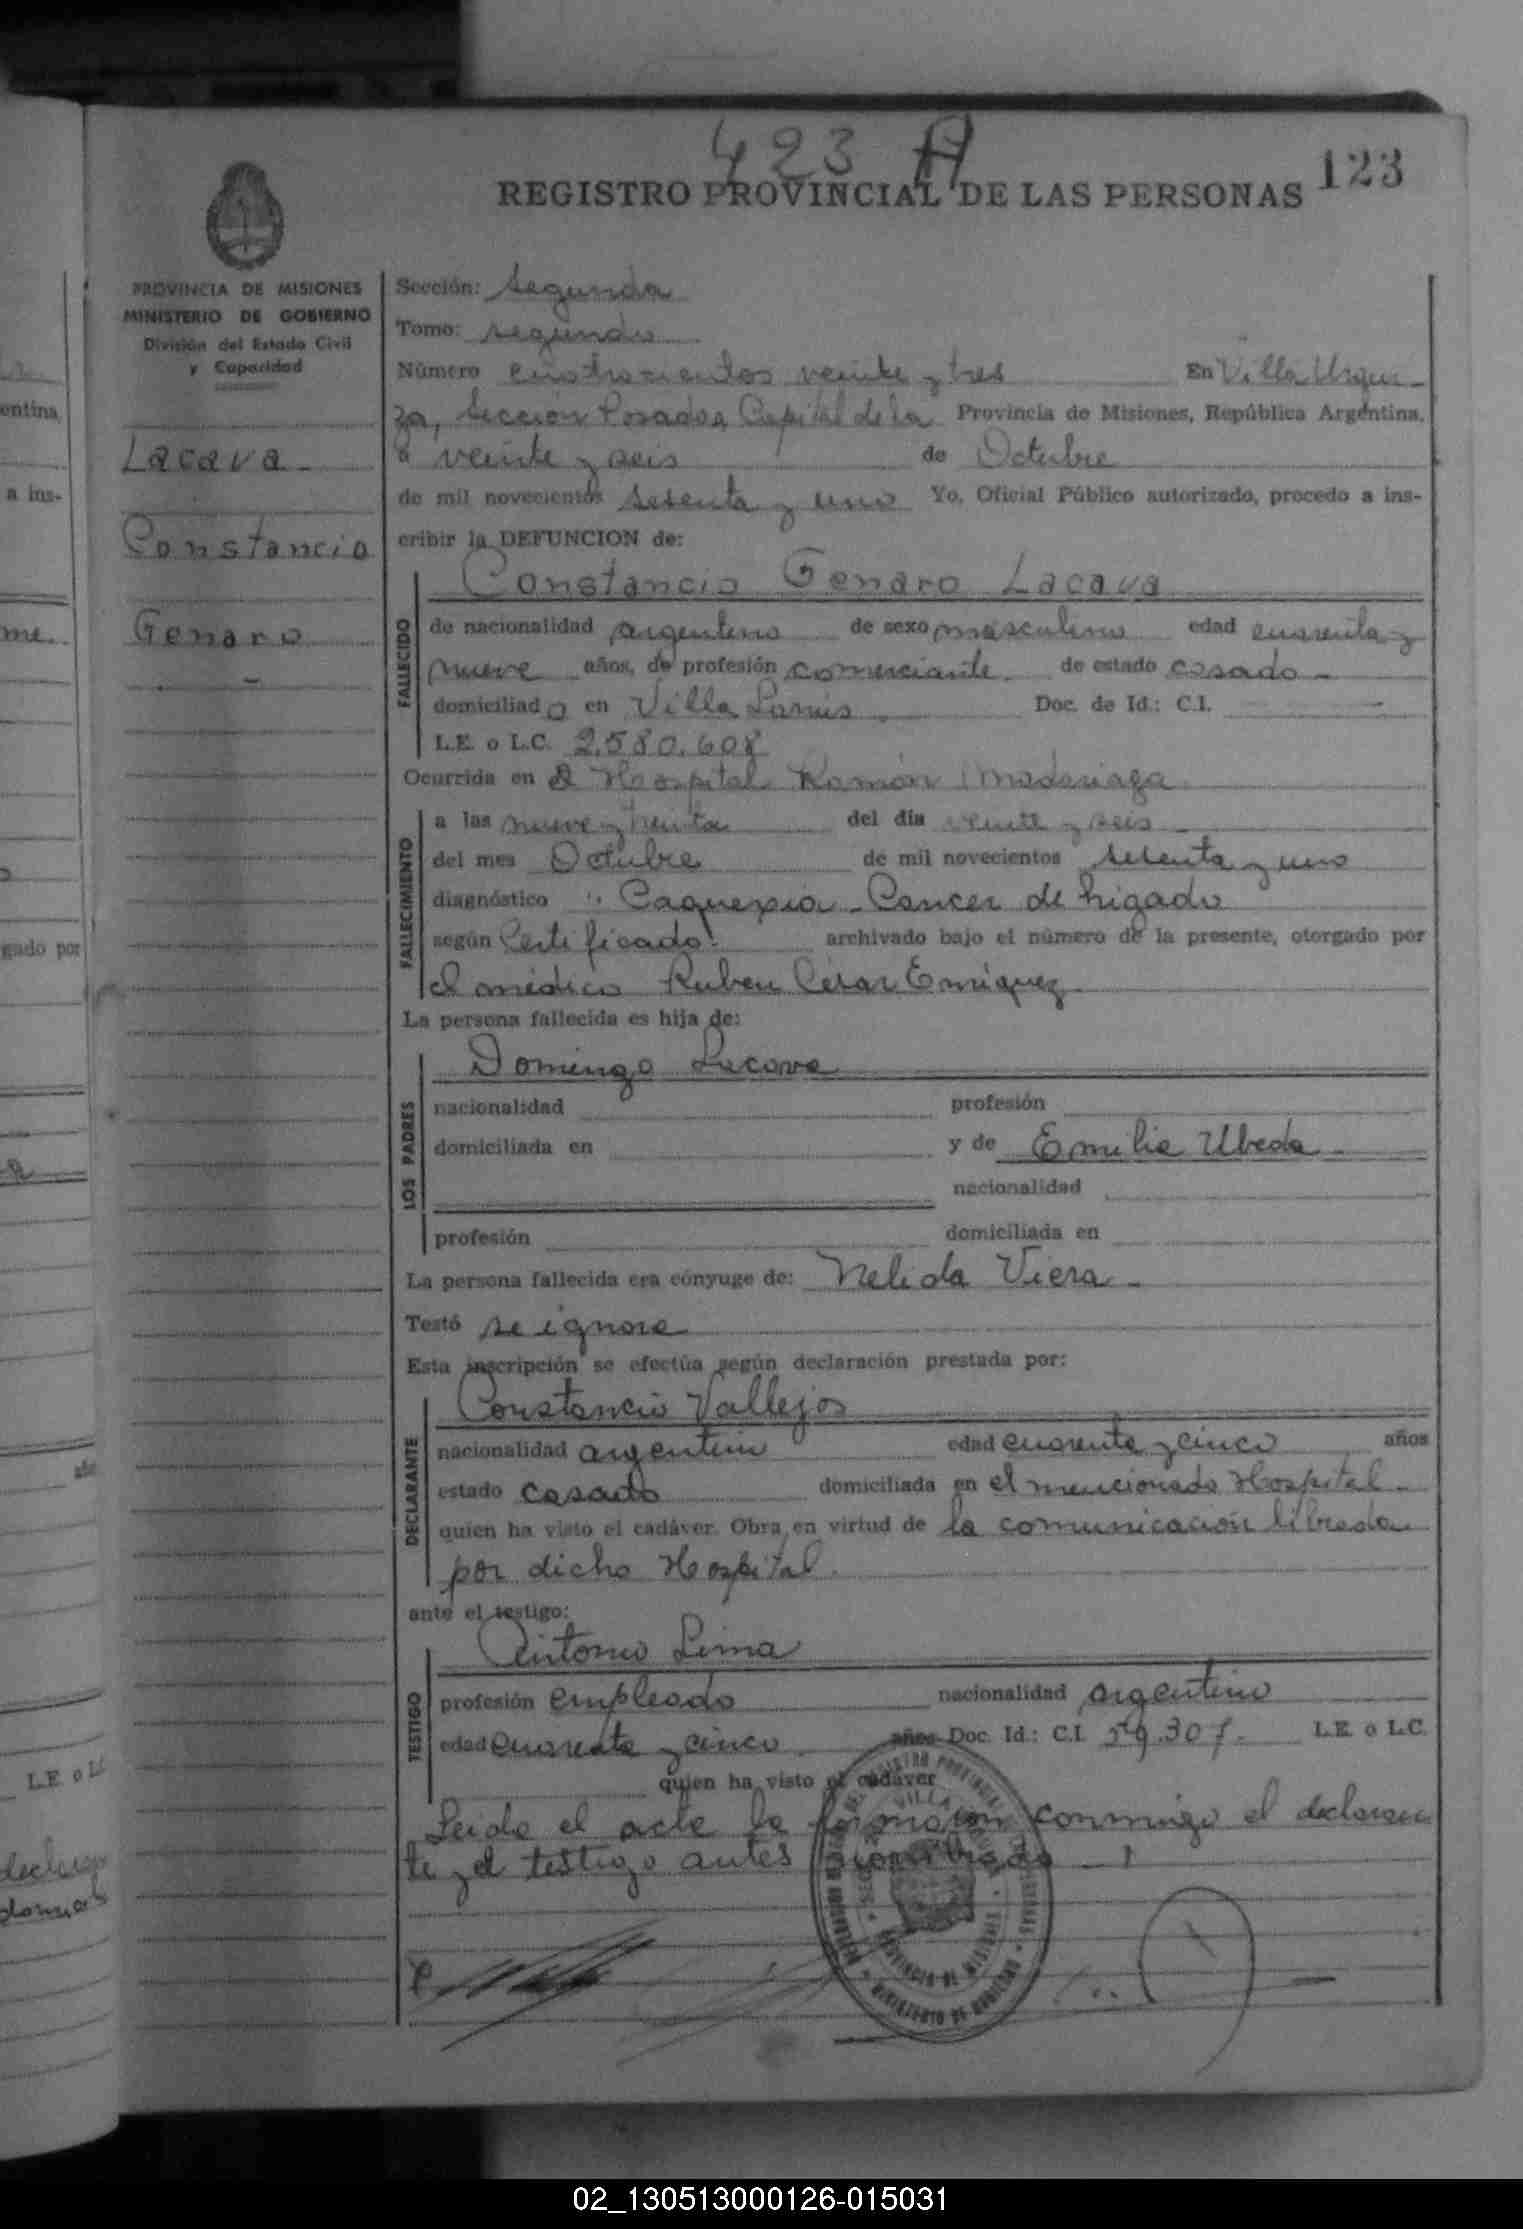 423 A
REGISTRO PROVINCIAL DE LAS PERSONAS 123
PROVINCIA DE MISIONES
MINISTERIO DE GOBIERNO
División del Estado Civil
y Capacidad
Lacava
Constancio
Genaro
Sección: Segunda
Tomo: segundo
Número cuatrocientos veinte y tres En Villa Urqui-
za, Sección Posadas, Capital de la Provincia de Misiones, República Argentina,
a veinte y seis de Octubre
de mil novecientos setenta y uno Yo, Oficial Público autorizado, procedo a ins-
cribir la DEFUNCION de:
Constancio Genaro Lacava
FALLECIDO
de nacionalidad argentino de sexo masculino edad cuarenta y
nueve años, de profesión comerciante. de estado casado -
domiciliado en Villa Lanús. Doc. de Id.: C.I.
L.E. o L.C. 2.580.608
Ocurrida en el Hospital Ramón Madariaga
FALLECIMIENTO
a las nueve y treinta del día veinte y seis
del mes Octubre de mil novecientos setenta y uno
diagnóstico " Caquexia - Cancer de higado
según Certificado archivado bajo el número de la presente, otorgado por
el médico Ruben César Enriquez
La persona fallecida es hija de:
LOS PADRES
Domingo Lacava
nacionalidad profesión
domiciliada en y de Emilia Ubeda
nacionalidad
profesión domiciliada en
La persona fallecida era cónyuge de: Nelida Viera -
Testó se ignora
Esta inscripción se efectúa según declaración prestada por:
DECLARANTE
Constancio Vallejos
nacionalidad argentino edad cuarenta y cinco años
estado casado domiciliada en el mencionado Hospital -
quien ha visto el cadáver. Obra en virtud de la comunicación librada
por dicho Hospital.
ante el testigo:
TESTIGO
Antonio Lima
profesión empleado nacionalidad argentino
edad cuarenta y cinco años Doc. Id.: C.I. 59.307. L.E. o L.C.
quien ha visto el cadáver
Leida el acta la firmaron conmigo el declaran
te y el testigo antes nombrado
L.E. o L.C.
02_130513000126-015031